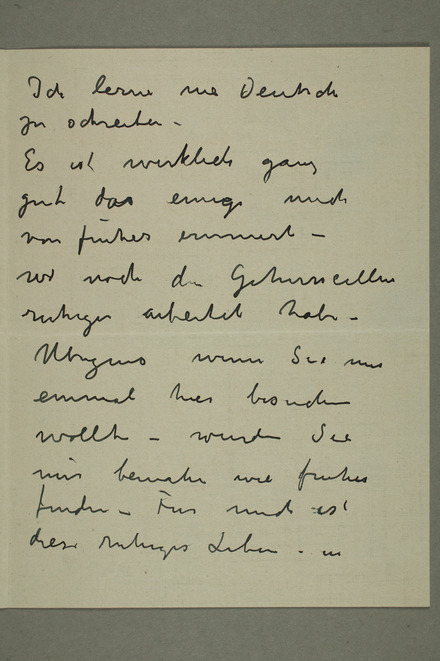 Ich lerne nie Deutsch
zu schreiben -
Es ist wirklich ganz
gut das einige mich
von früher erinnert -
wo noch die Gehirncellen
ruhiger arbeitet habe -
Übrigens wenn Sie mich
einmal hier besuchen
wollte - wurden Sie
mir beinahe wie früher
finden - Für mich ist
diese ruhiges Leben - in